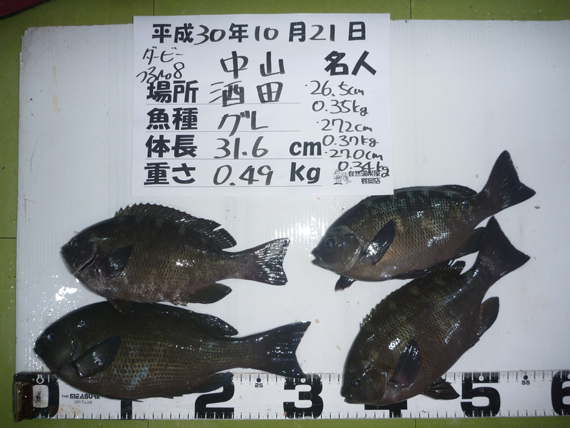 平成30年10月21日
ダービー
つるno8
中山 名人
場所 酒田
魚種 グレ
体長 31.6 cm
重さ 0.49 kg
・26.5cm
0.35kg
・27.2cm
0.37kg
・27.0cm
0.34kg
鶴岡店
0 1 2 25 3 4 5 55 6
THE MEASURE